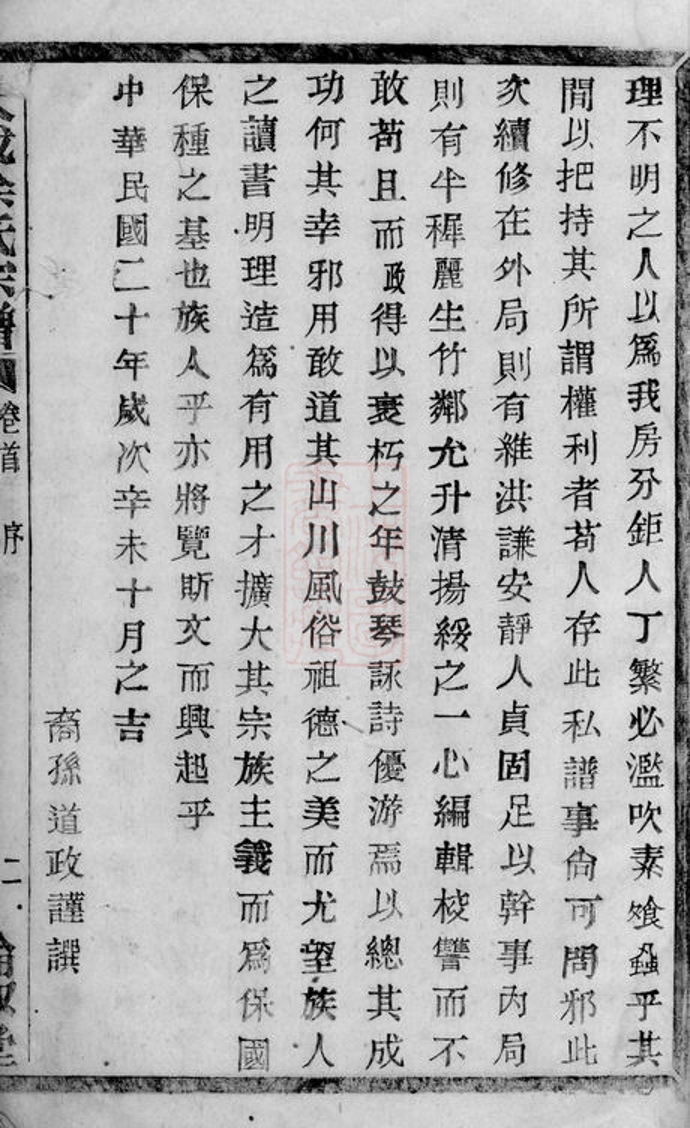 理不明之人以為我房分鉅人丁繁必濫吹素飧蝨乎其
間以把持其所謂權利者苟人存此私譜事尙可問邪此
次續修在外局則有維洪謙安靜人貞固足以幹事內局
則有牛穉麗生竹鄰允升清揚綏之一心編輯校讐而不
敢苟且而政得以衰朽之年鼓琴詠詩優游焉以總其成
功何其幸邪用敢道其山川風俗祖德之美而尤望族人
之讀書明理造為有用之才擴大其宗族主義而為保國
保種之基也族人乎亦將覽斯文而興起乎
中華民國二十年歲次辛未十月之吉
裔孫道政謹譔
氏宗譜 卷首 序 二